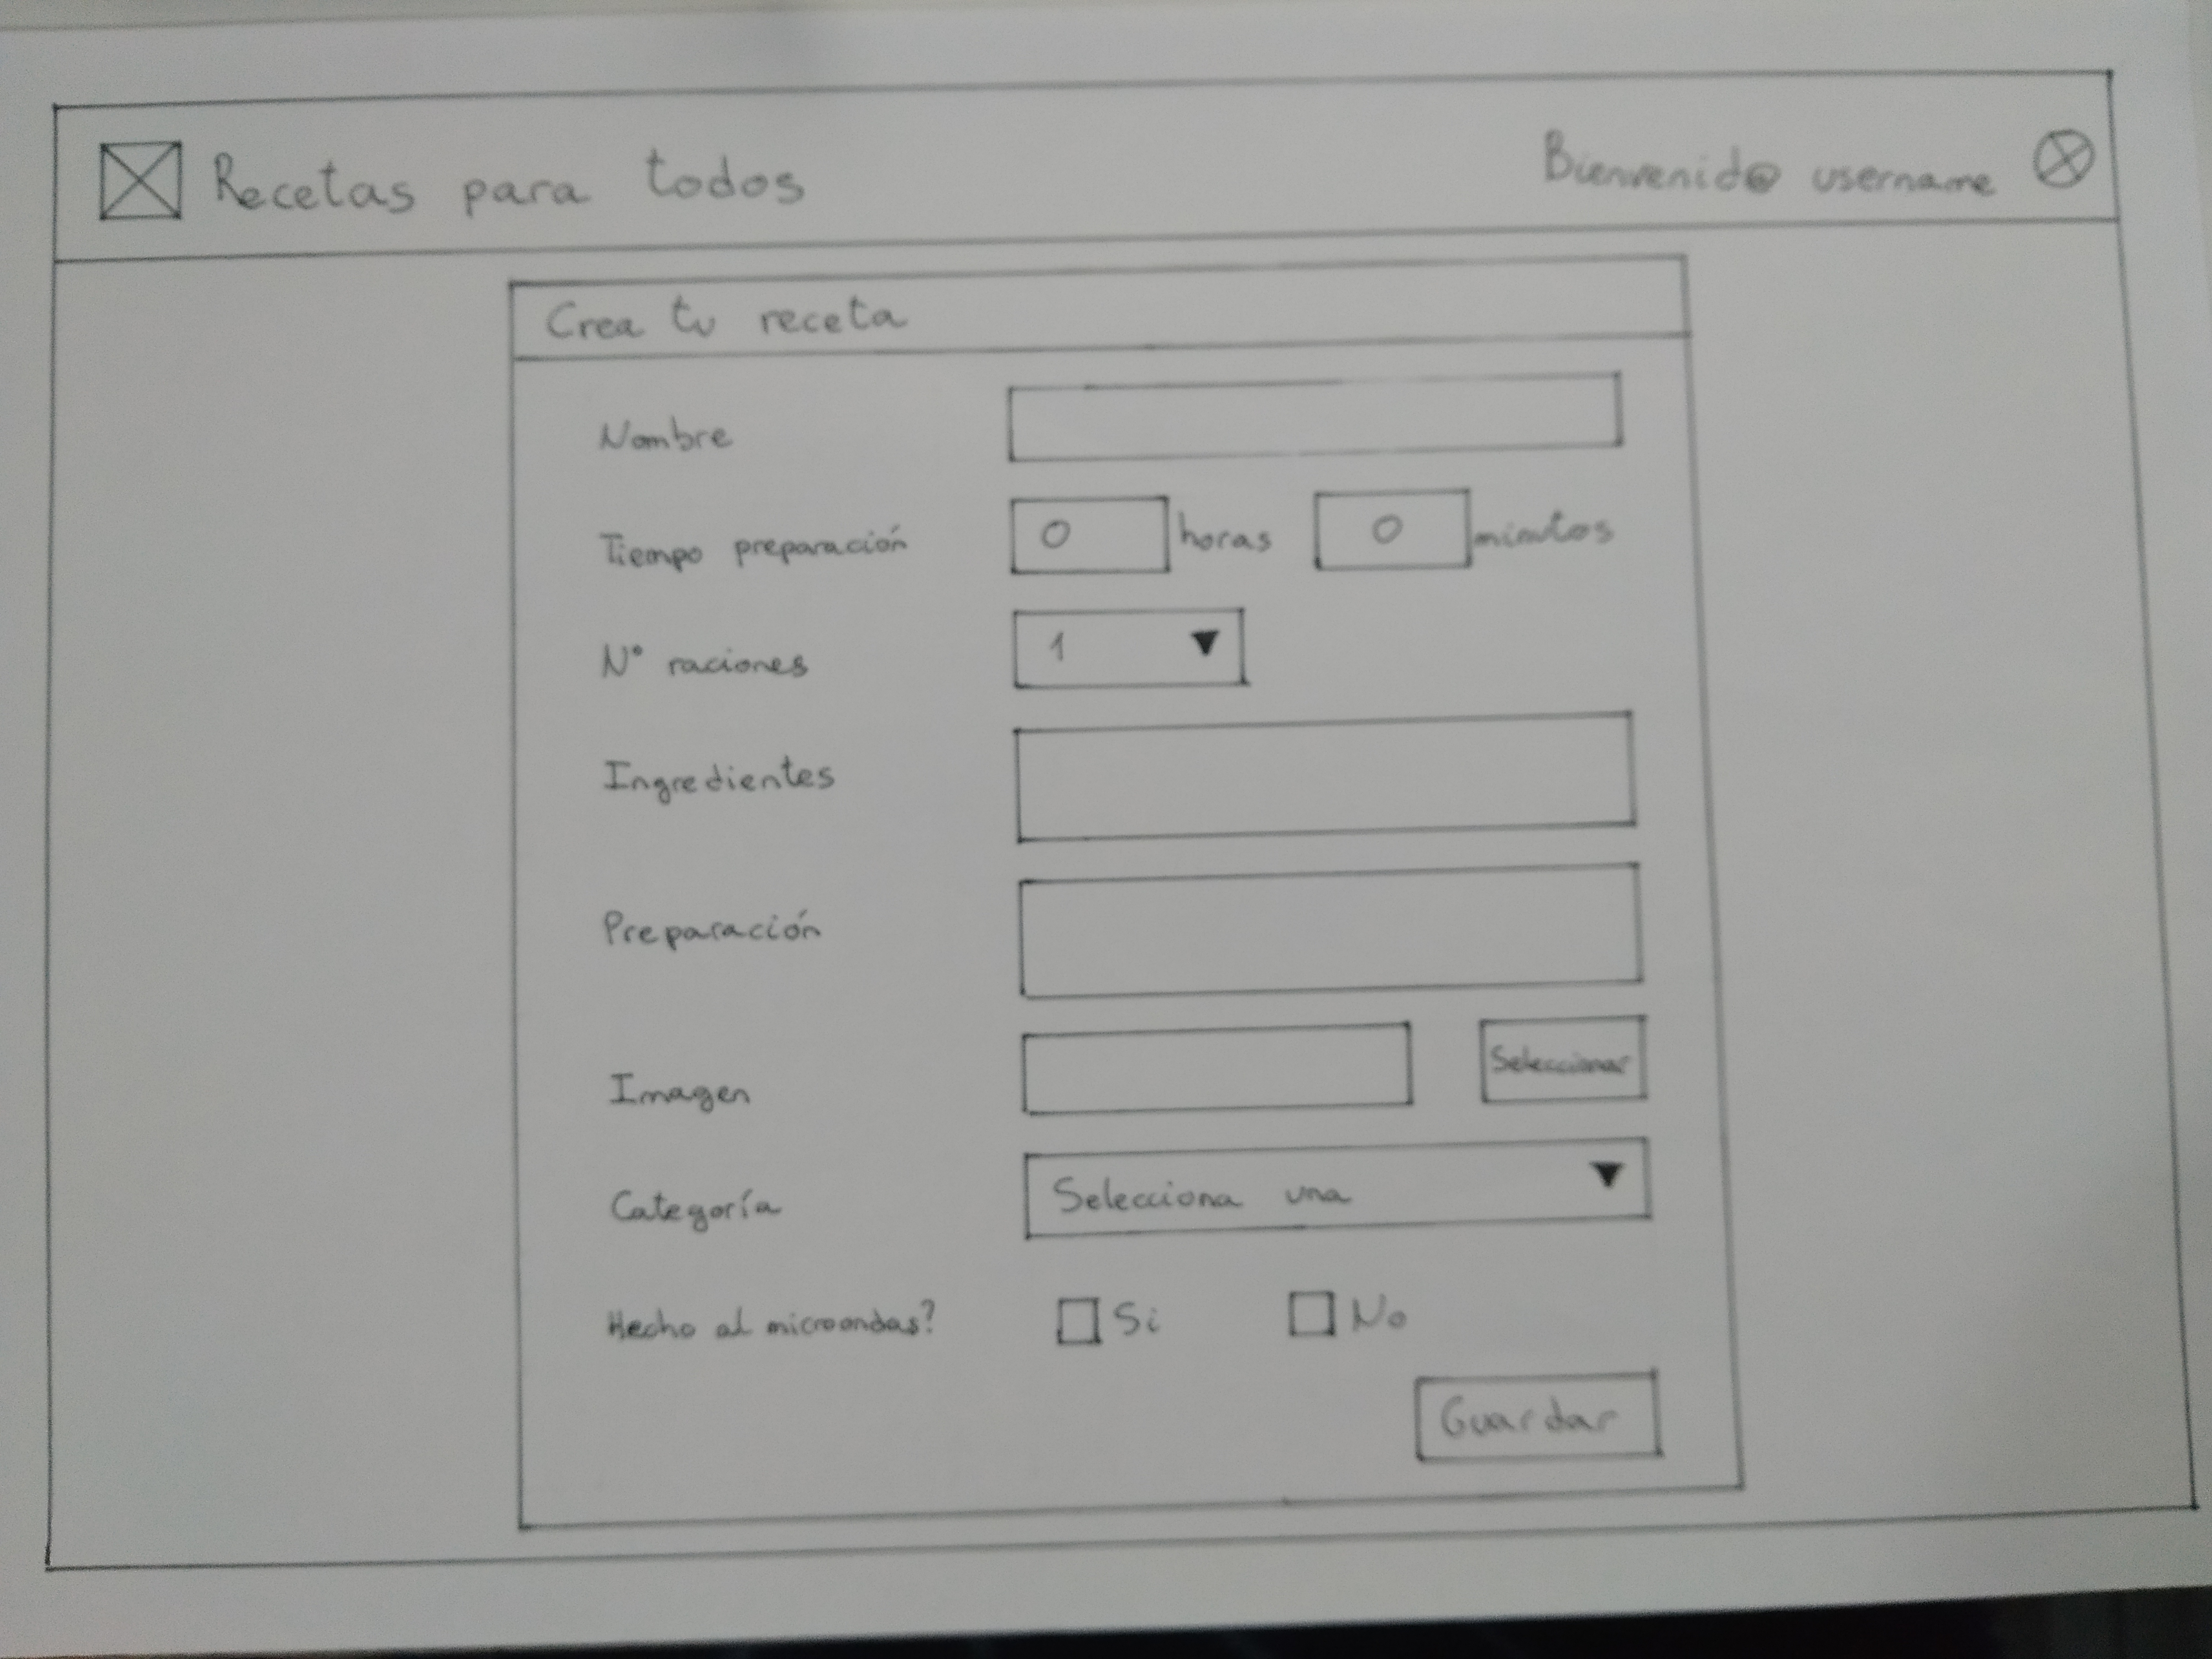 Recetas para todos Bienvenid@ username
Crea tu receta
Nombre
Tiempo preparación 0 horas 0 minutos
Nº raciones 1
Ingredientes
Preparación
Imagen Seleccionar
Categoría Selecciona una
Hecho al microondas? Si No
Guardar